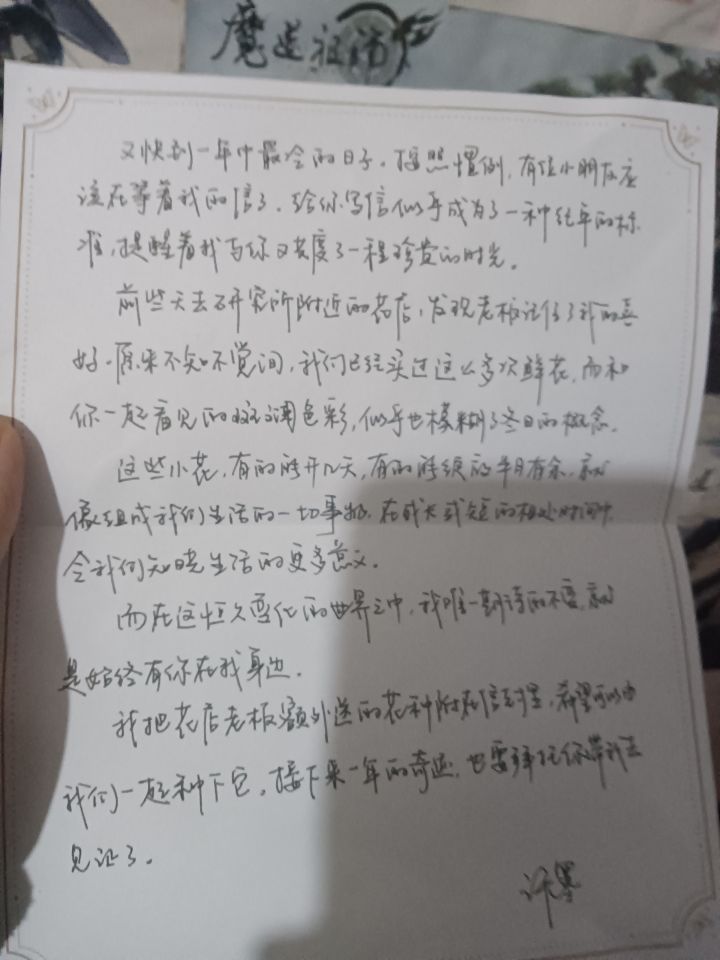 魔道祖师
又快到一年中最冷的日子。按照惯例，有位小朋友应
该在等着我的信了。给你写信似乎成为了一种纪年的标
准，提醒着我与你又共度了一程珍贵的时光。
前些天去研究所附近的花店，发现老板记住了我的喜
好。原来不知不觉间，我们已经买过这么多次鲜花，而和
你一起看见的斑斓色彩，似乎也模糊了冬日的概念。
这些小花，有的盛开几天，有的能绽放半月有余，就
像组成我们生活的一切事物，在或长或短的相处时间中，
令我们知晓生活的更多意义。
而在这恒久变化的世界之中，我唯一期待的不变，就
是始终有你在我身边。
我把花店老板额外送的花种附在信封里，希望可以由
我们一起种下它。接下来一年的奇迹，也要拜托你带我去
见证了。
许墨